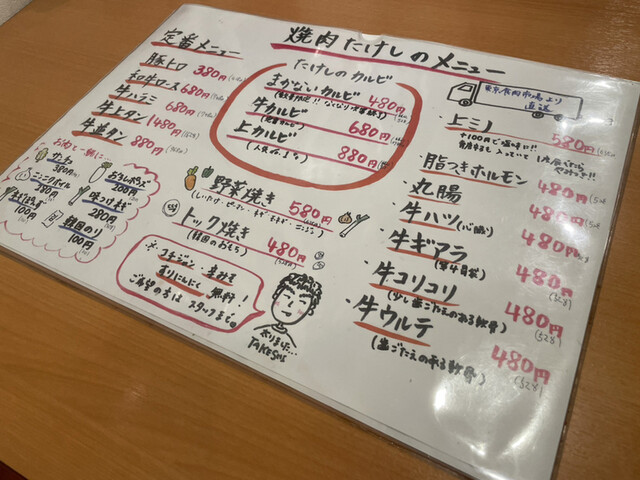 焼肉たけしのメニュー
定番メニュー
豚トロ 380円
和牛ロース 680円
牛ハラミ 680円
牛上タン 1480円
牛並タン 880円
お肉と一緒に…
サンチュ
380円
とろろポン酢
200円
ニンニクオイル
280円
味つけネギ
280円
100円
韓国のり
100円
たけしのカルビ
まかないカルビ 480円
牛カルビ 680円
上カルビ 880円
(人気No.1)
野菜焼き 580円
トック焼き 480円
(韓国のおもち)
※コチジャン・
すりにんにく 無料!
ご希望の方はスタッフまで。
おりました…
TAKESHI
東京食肉市場より
直送
・上ミノ 580円
・脂つきホルモン 480円
・丸腸 480円
・牛ハツ(心臓) 480円
・牛ギアラ 480円
(第4胃袋)
・牛コリコリ 480円
(528)
(少し歯ごたえのある軟骨)
・牛ウルテ 480円
(528)
(歯ごたえのある軟骨)